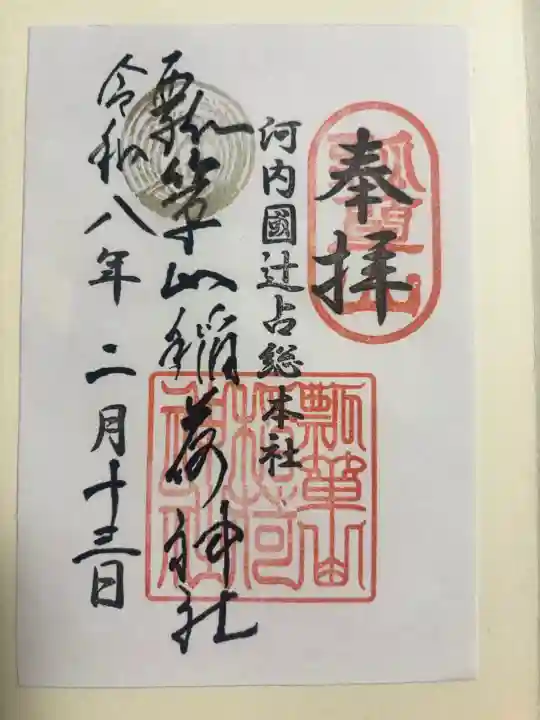 奉拝
瓢箪山
河内國辻占総本社
瓢箪山稲荷神社
瓢箪山稲荷神社
令和八年 二月十三日